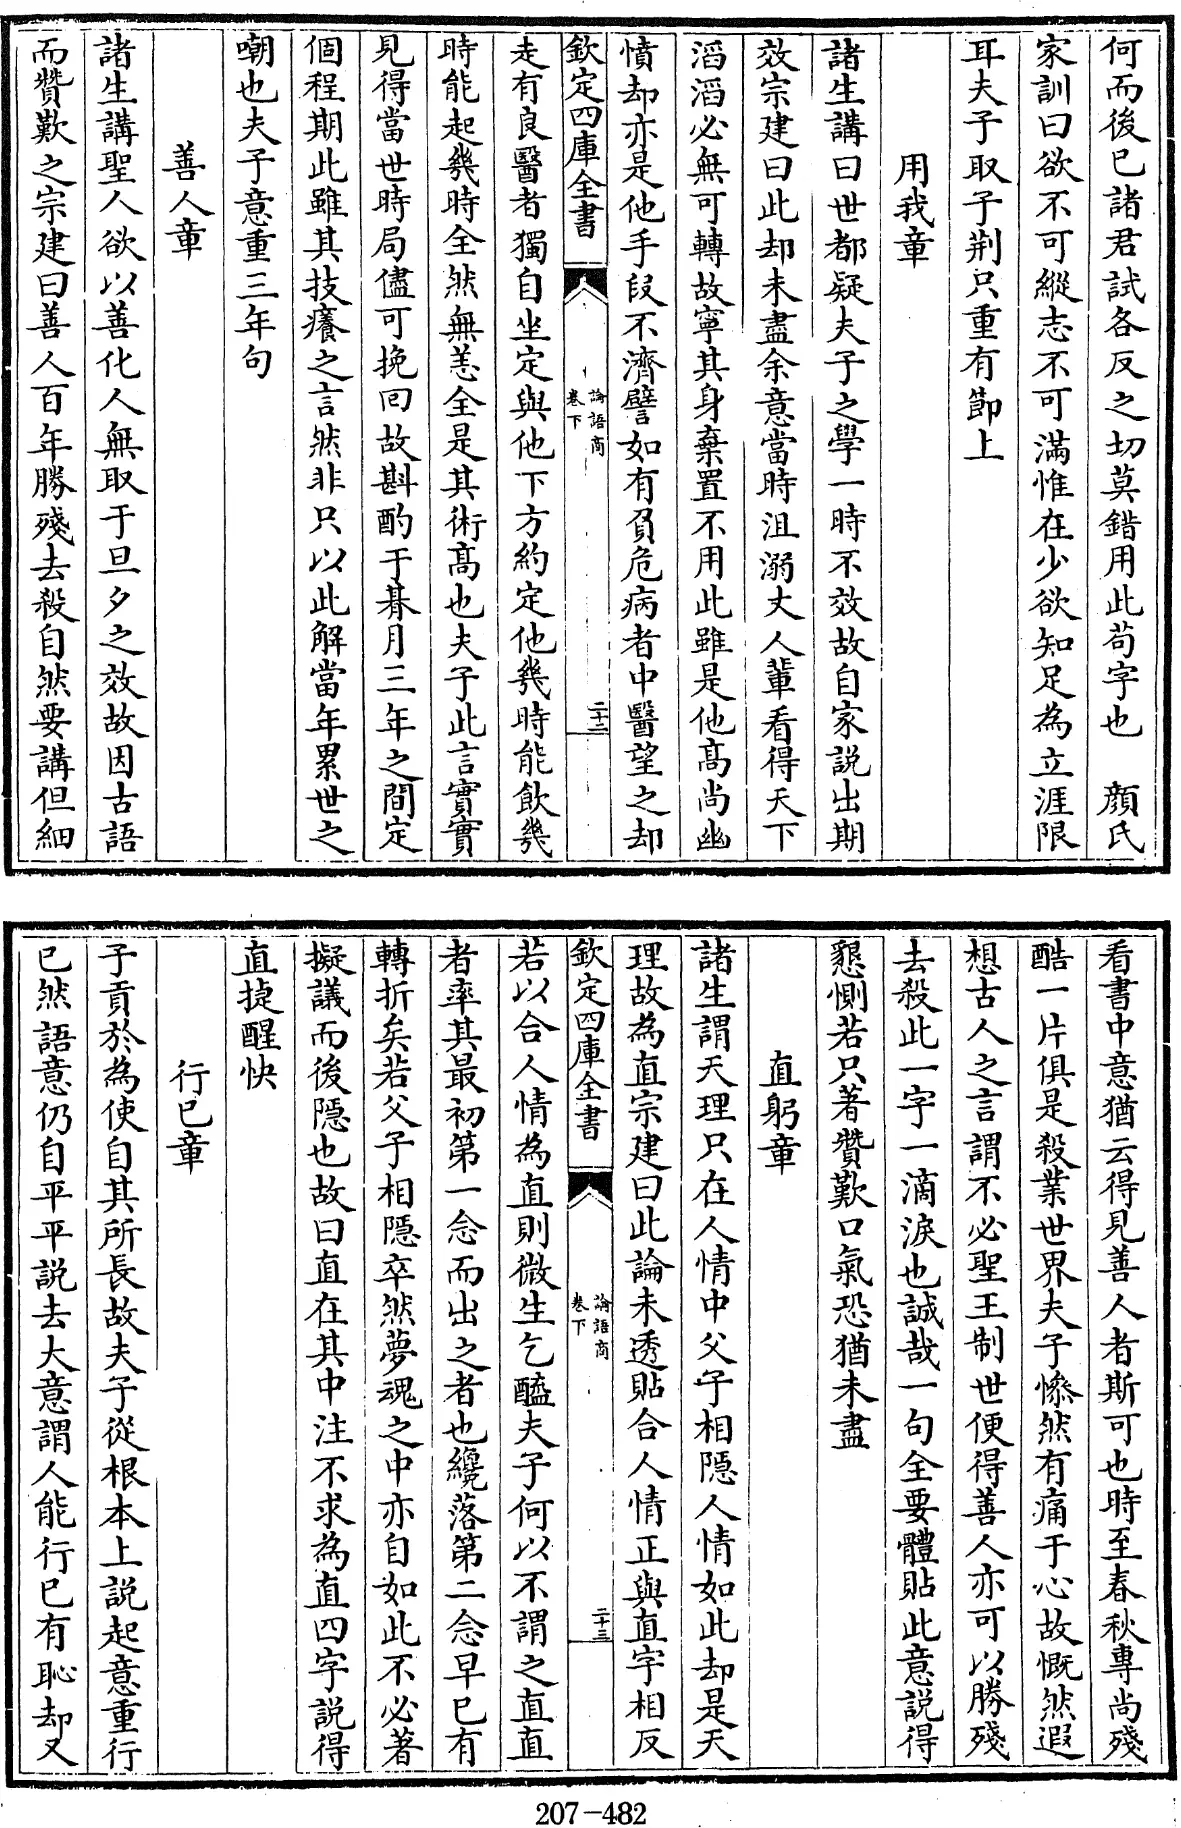 何而後已諸君試各反之切莫錯用此苟字也　顔氏
家訓曰欲不可縱志不可滿惟在少欲知足為立涯限
耳夫子取子荆只重有節上
用我章
諸生講曰世都疑夫子之學一時不效故自家説出期
效宗建曰此却未盡余意當時沮溺丈人輩看得天下
滔滔必無可轉故寧其身棄置不用此雖是他高尚幽
憤却亦是他手段不濟譬如有負危病者中醫望之却
欽定四庫全書
論語商
卷下
二十二
走有良醫者獨自坐定與他下方約定他幾時能飲幾
時能起幾時全然無恙全是其術高也夫子此言實實
見得當世時局儘可挽回故斟酌于朞月三年之間定
個程期此雖其技癢之言然非只以此解當年累世之
嘲也夫子意重三年句
善人章
諸生講聖人欲以善化人無取于旦夕之效故因古語
而贊歎之宗建曰善人百年勝殘去殺自然要講但細
看書中意猶云得見善人者斯可也時至春秋專尚殘
酷一片俱是殺業世界夫子慘然有痛于心故慨然遐
想古人之言謂不必聖王制世便得善人亦可以勝殘
去殺此一字一滴淚也誠哉一句全要體貼此意説得
懇惻若只著贊歎口氣恐猶未盡
直躬章
諸生謂天理只在人情中父子相隱人情如此却是天
理故為直宗建曰此論未透貼合人情正與直字相反
欽定四庫全書
論語商
卷下
二十三
若以合人情為直則微生乞醯夫子何以不謂之直直
者率其最初第一念而出之者也纔落第二念早已有
轉折矣若父子相隱卒然夢魂之中亦自如此不必著
擬議而後隱也故曰直在其中注不求為直四字説得
直捷醒快
行已章
子貢於為使自其所長故夫子從根本上説起意重行
已然語意仍自平平説去大意謂人能行已有恥却又
207-482